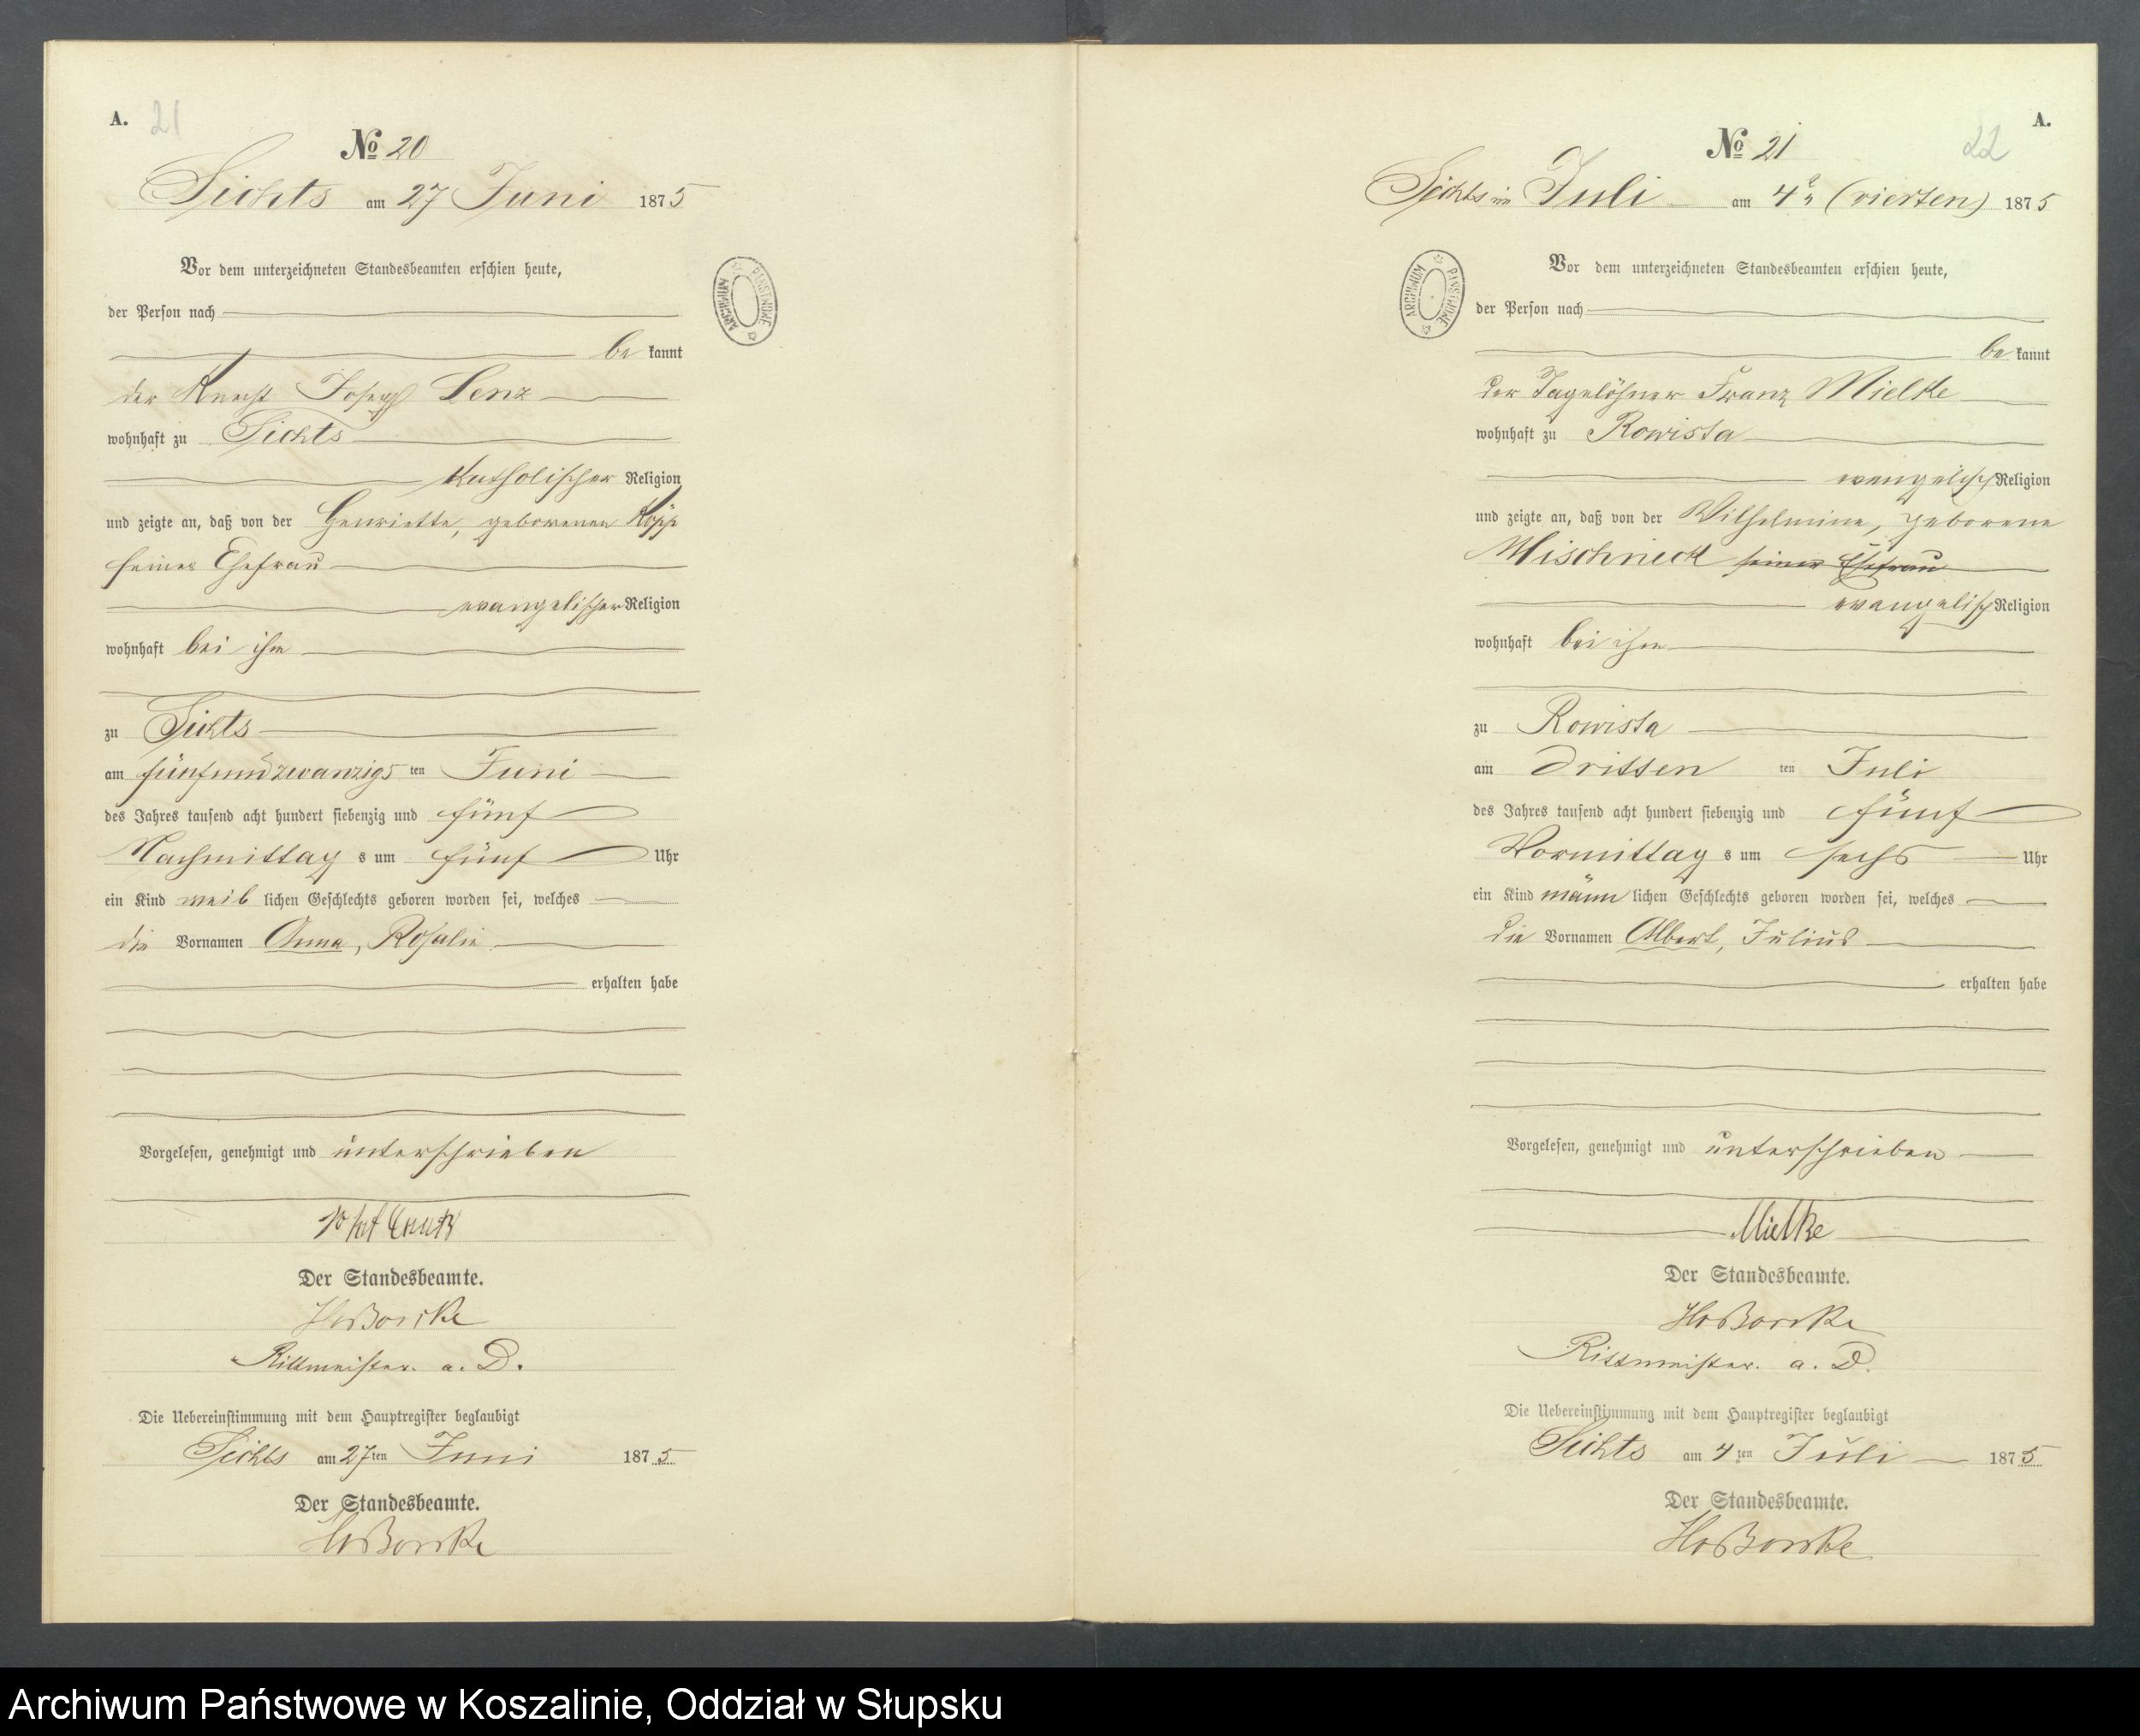 A. 21
№ 20
Sichts am 27 Juni 1875
Vor dem unterzeichneten Standesbeamten erschien heute,
der Person nach
be kannt
der Knecht Joseph Lenz
wohnhaft zu Sichts
katholischer Religion
und zeigte an, daß von der Henriette, geborenen Köpp
seiner Ehefrau
evangelischer Religion
wohnhaft bei ihm
zu Sichts
am fünfundzwanzigs ten Juni
des Jahres tausend acht hundert siebenzig und fünf
Nachmittag s um fünf Uhr
ein Kind weib lichen Geschlechts geboren worden sei, welches
die Vornamen Anna, Rosalie
erhalten habe
Vorgelesen, genehmigt und unterschrieben
Der Standesbeamte.
Rittmeister. a. D.
Die Uebereinstimmung mit dem Hauptregister beglaubigt
Sichts am 27ten Juni 1875
Der Standesbeamte.
ARCHIWUM PAŃSTWOWE
A.
22
№ 21
Sichts im Juli am 4 (vierten) 1875
Vor dem unterzeichneten Standesbeamten erschien heute,
der Person nach
be kannt
der Tagelöhner Franz Mielke
wohnhaft zu Rowista
evangelisch Religion
und zeigte an, daß von der Wilhelmine, geborene
Mischnick seiner Ehefrau
evangelisch Religion
wohnhaft bei ihm
zu Rowista
am dritten ten Juli
des Jahres tausend acht hundert siebenzig und fünf
Vormittag s um sechs Uhr
ein Kind männ lichen Geschlechts geboren worden sei, welches
die Vornamen Albert, Julius
erhalten habe
Vorgelesen, genehmigt und unterschrieben
Mielke
Der Standesbeamte.
Rittmeister. a. D.
Die Uebereinstimmung mit dem Hauptregister beglaubigt
Sichts am 4ten Juli 1875
Der Standesbeamte.
ARCHIWUM PAŃSTWOWE
Archiwum Państwowe w Koszalinie, Oddział w Słupsku